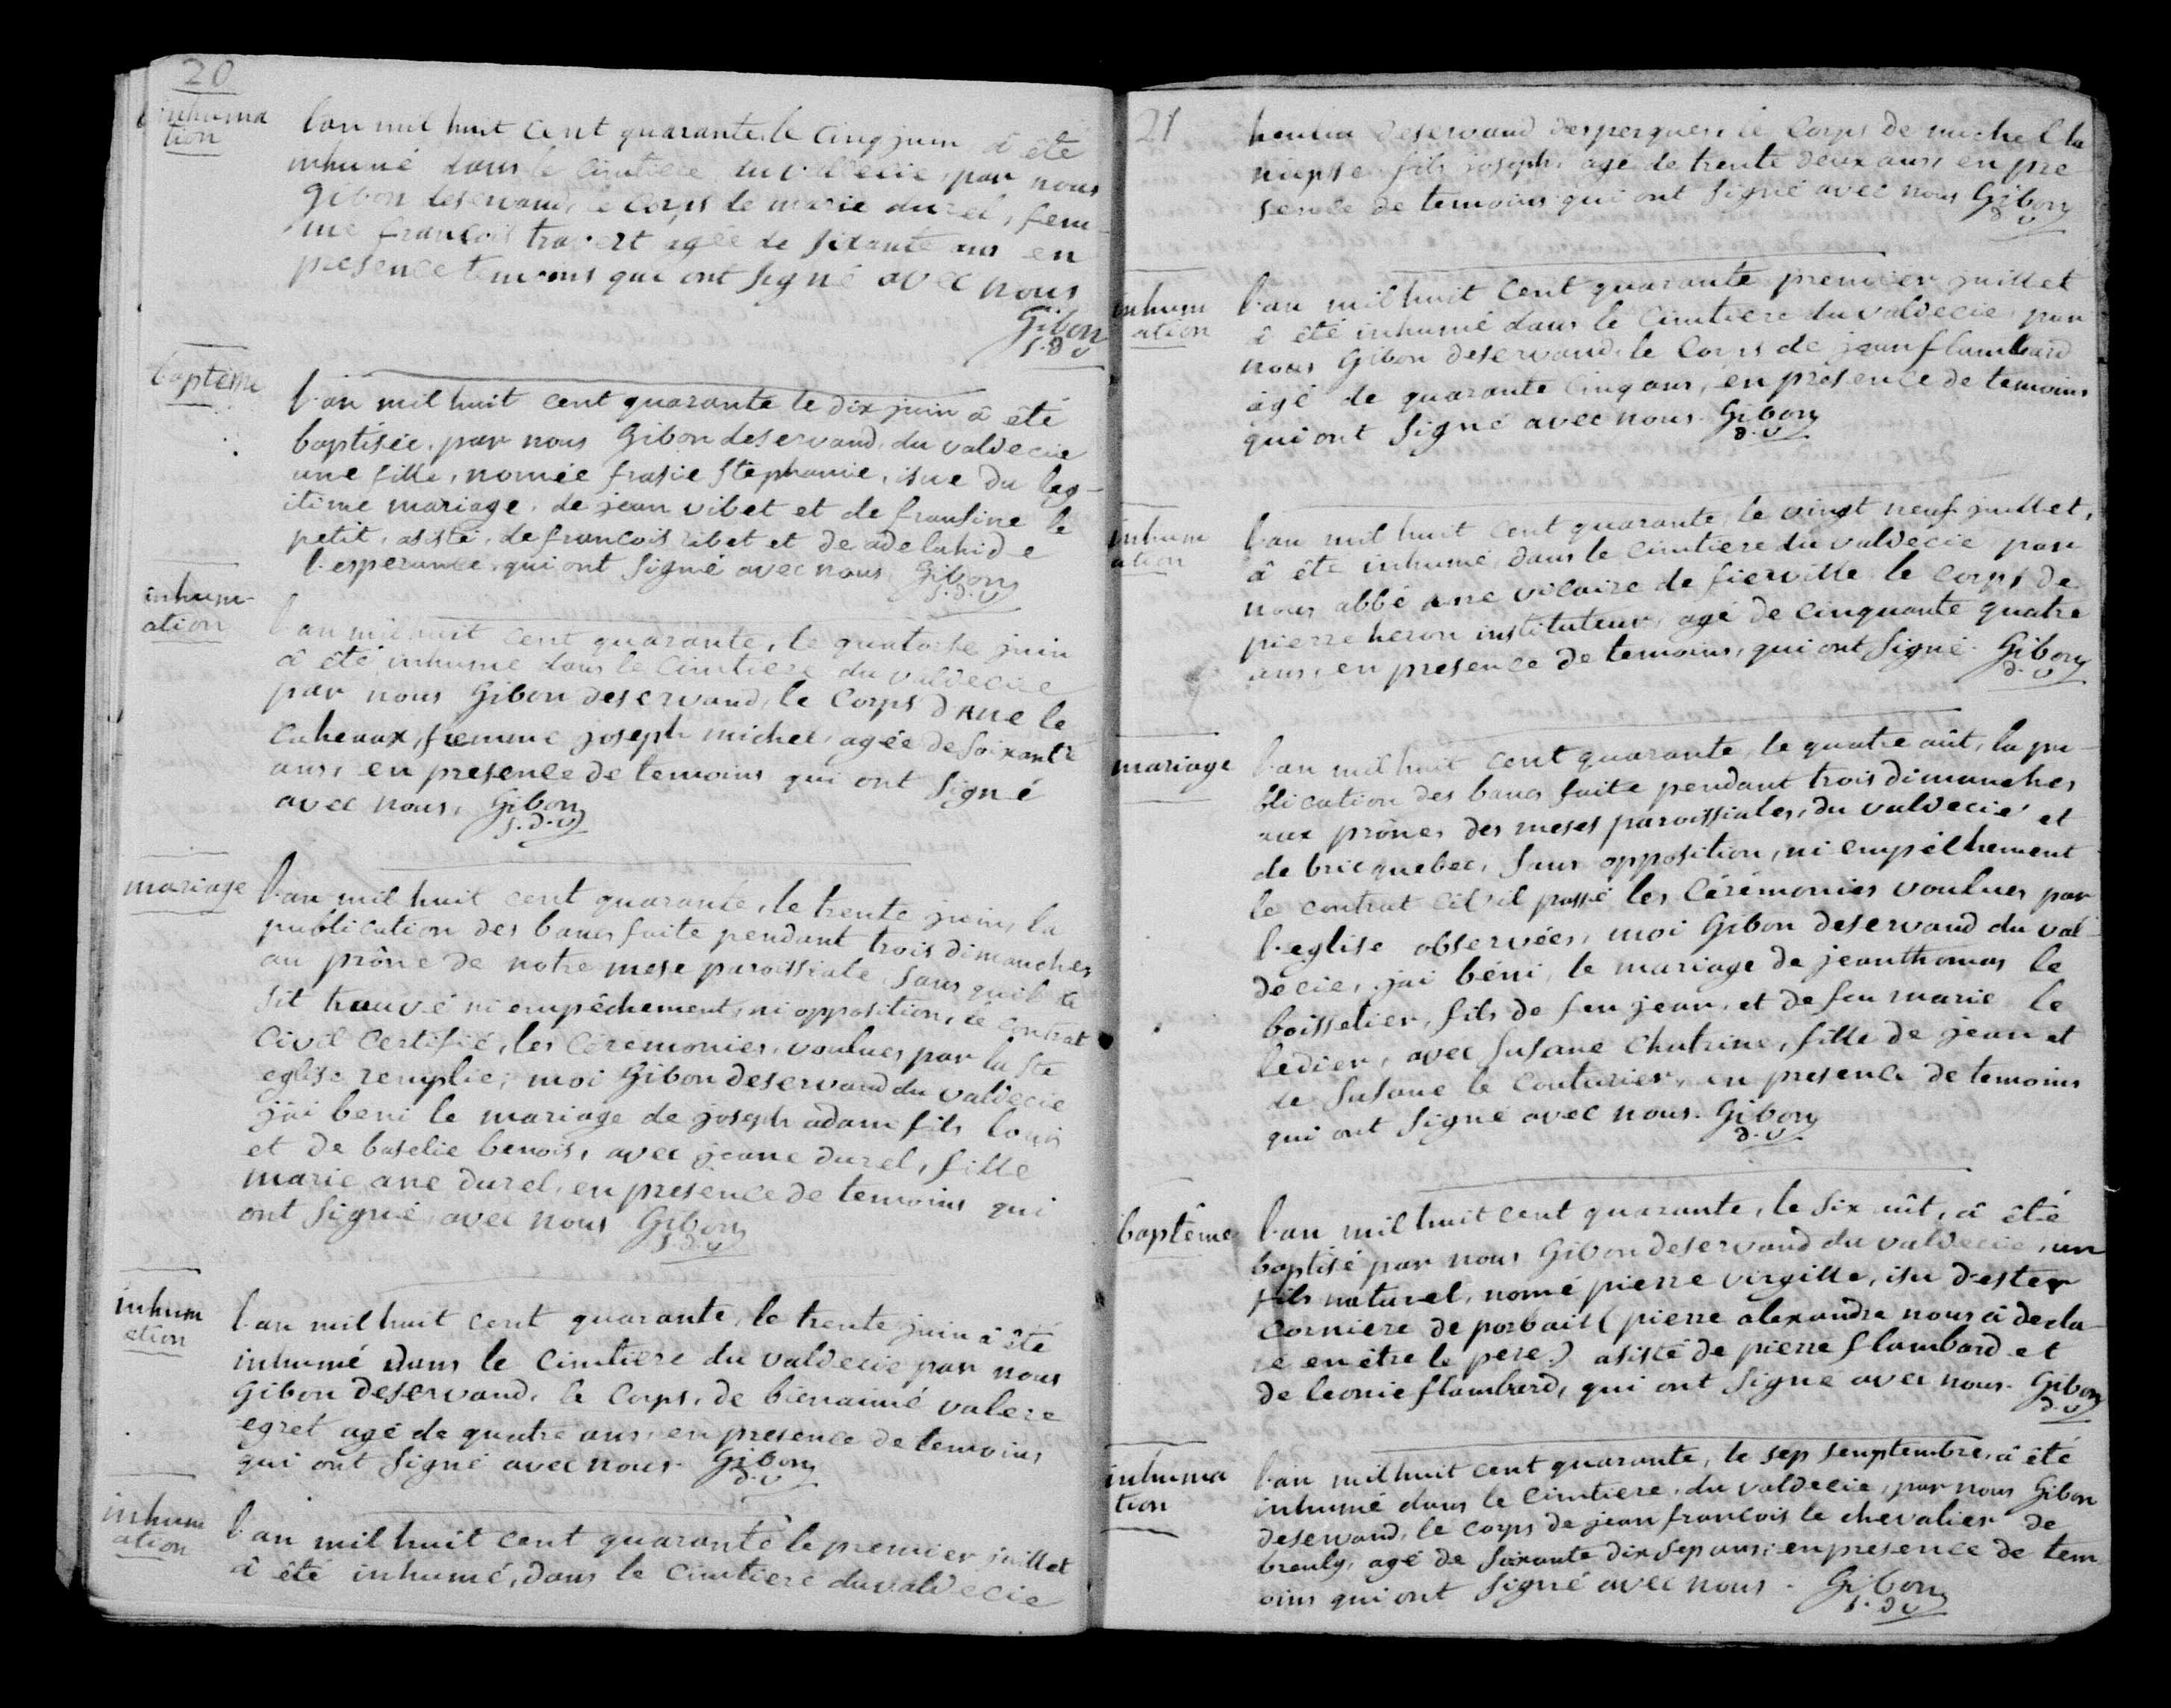 20
inhuma
tion
l'an mil huit cent quarante, le cinq juin â été
inhumé dans le cimtiere du valdecie, par nous
Gibon deservand, le corps de marie durel, fem-
me francois travert agée de sixante ans en
presence temoins qui ont signé avec nous
Gibon
s.d.v
baptême
l'an mil huit cent quarante le dix juin â été
baptisée, par nous Gibon deservand, du valdecie
une fille, nomée frasie stephanie, isue du leg-
itime mariage, de jean vibet et de fransine le
petit, asisté, de francois vibet et de adelahide
l'esperance, qui ont signé avec nous Gibon
s.d.v
inhum-
ation
l'an mil huit cent quarante, le quatorse juin
â été inhumé dans le cimtiere du valdecie
par nous Gibon deservand, le corps d'ane le
caheaux, femme joseph michel, agée de soixante
ans, en presence de temoins qui ont signé
avec nous, Gibon
s.d.v
mariage
l'an mil huit cent quarante, le trente juin, la
publication des bancs faite pendant trois dimanches
au prône de notre mese paroissiale, sans quil se
sit trouvé ni empêchement, ni opposition, le contrat
civil certifié, les cérémonies, voulues par la ste
eglise remplie, moi Gibon deservand du valdecie
jai beni le mariage de joseph adam fils louis
et de baselie benois, avec jeane durel, fille
marie ane durel, en presence de temoins qui
ont signé, avec nous Gibon
s.d.v
inhum
ation
l'an mil huit cent quarante, le trente juin â été
inhumé dans le cimtiere du valdecie par nous
Gibon deservand, le corps, de bienaimé valere
egret agé de quatre ans, en presence de temoins
qui ont signé avec nous. Gibon
d.v
inhum
ation
l'an mil huit cent quarante le premier juillet
â été inhumé, dans le cimtiere du valdecie
21
deservand desperques, le corps de michel la
niepse fils joseph, agé de trente deux ans, en pre
sence de temoins qui ont signé avec nous Gibon
d v
inhum
ation
l'an mil huit cent quarante premier juillet
â été inhumé dans le cimtiere du valdecie, par
nous Gibon deservand, le corps de jean flambard
agé de quarante cinq ans, en présence de temoins
qui ont signé avec nous. Gibon
d.v
inhum
ation
l'an mil huit cent quarante, le vingt neuf juillet,
â été inhumé, dans le cimtiere du valdecie par
nous abbé vicaire de fierville le corps de
pierre heron instituteur, agé de cinquante quatre
ans, en presence de temoins, qui ont signé. Gibon
d.v
mariage
l'an mil huit cent quarante, le quatre aût, la pu-
blication des bancs faite pendant trois dimanches
aux prônes des meses paroissiales, du valdecie et
de bricquebec, sans opposition, ni empêchement
le contrat civil passé les cérémonies voulues par
l'eglise observées, moi Gibon deservand du val-
decie, jai béni, le mariage de jeanthomas le
boisselier, fils de feu jean, et de feu marie le
ledier, avec susane chatrine, fille de jean et
de susane le couturier, en presence de temoins
qui ont signé avec nous. Gibon
d.v
baptême
l'an mil huit cent quarante, le six aût, â été
baptisé par nous Gibon deservand du valdecie, un
fils naturel, nomé pierre virgille, isu d'ester
corniere de porbail (pierre alexandre nous â decla-
ré en être le pere) asisté de pierre flambard et
de leonie flambard, qui ont signé avec nous. Gibon
d.v
inhuma
tion
l'an mil huit cent quarante, le sep semptembre, â été
inhumé dans le cimtiere, du valdecie, par nous Gibon
deservand, le corps de jean francois le chevalier de
breuly, agé de soixante dix sep ans, en presence de tem
oins qui ont signé avec nous. Gibon
s.d v